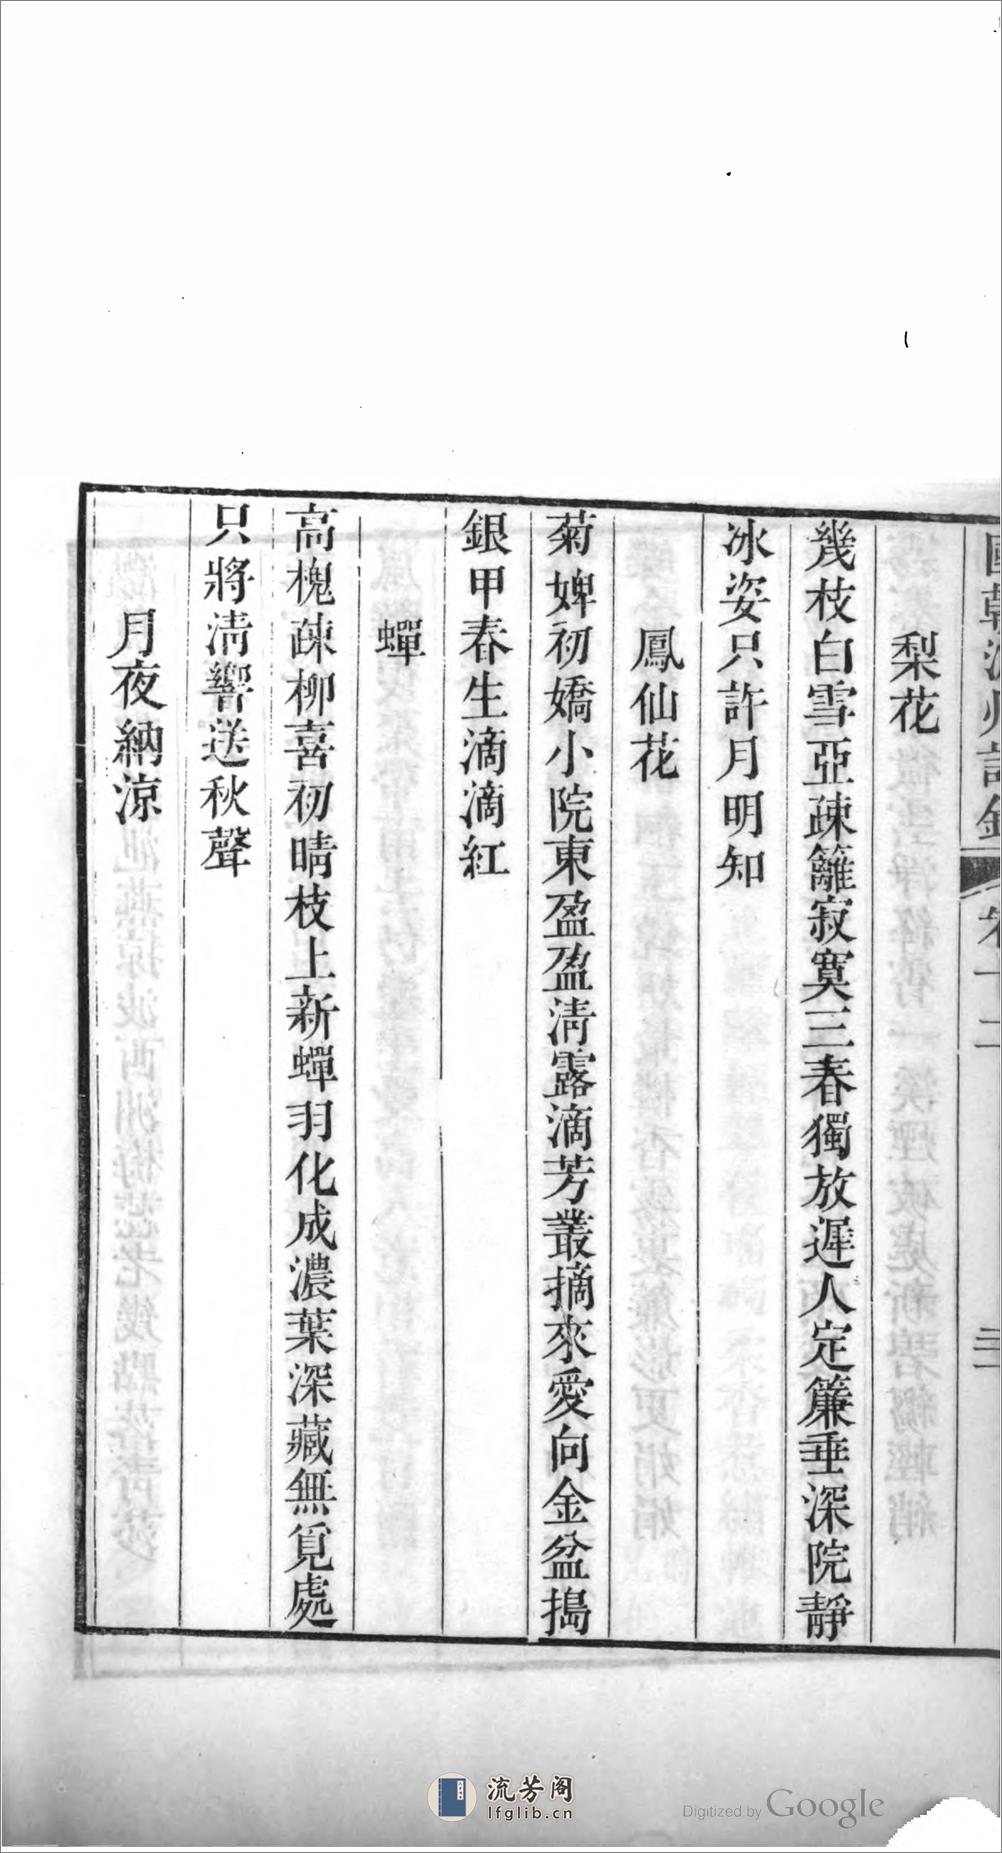 國朝滄州詩鈔 卷十二 三
梨花
幾枝白雪亞疎籬寂寞三春獨放遲人定簾垂深院靜
冰姿只許月明知
鳳仙花
菊婢初嬌小院東盈盈淸露滴芳叢摘來愛向金盆搗
銀甲春生滴滴紅
蟬
高槐疎柳喜初晴枝上新蟬羽化成濃葉深藏無覓處
只將淸響送秋聲
月夜納涼
流芳阁
lfglib.cn
Digitized by Google